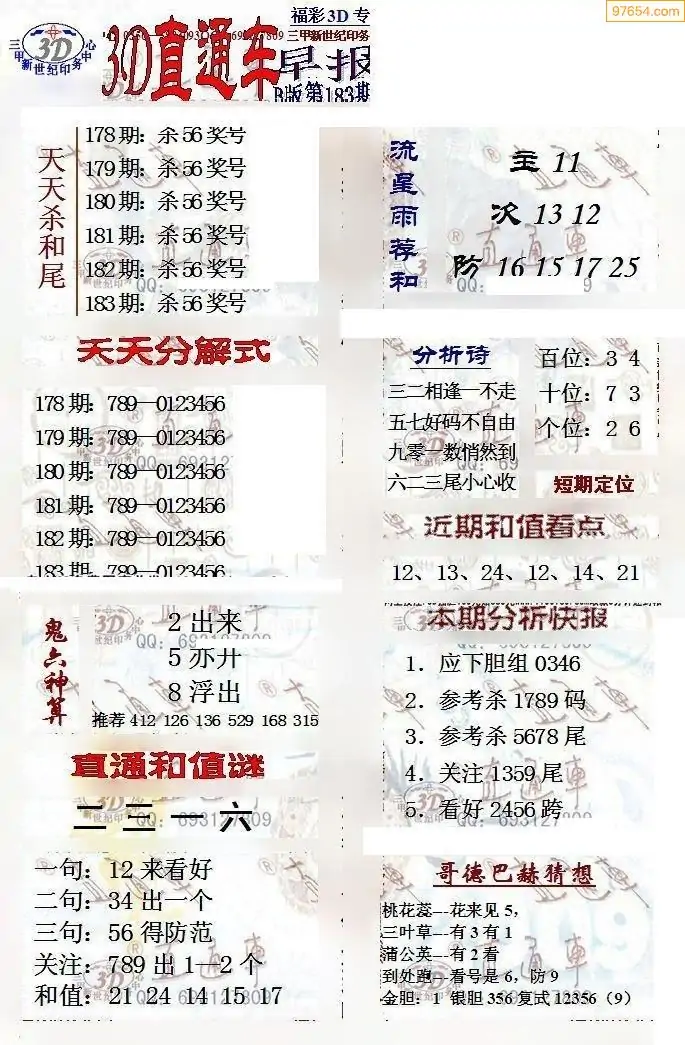 97654.com
福彩3D专
三甲新世纪印务中心
3D
3D直通车
三甲新世纪印务
早报
B版第183期
天天杀和尾
178期：杀56奖号
179期：杀56奖号
180期：杀56奖号
181期：杀56奖号
182期：杀56奖号
183期：杀56奖号
流星雨荐和
主 11
次 13 12
防 16 15 17 25
天天分解式
178期：789—0123456
179期：789—0123456
180期：789—0123456
181期：789—0123456
182期：789—0123456
183期：789—0123456
分析诗
三二相逢一不走
五七好码不自由
九零一数悄然到
六二三尾小心收
百位：3 4
十位：7 3
个位：2 6
短期定位
近期和值看点
12、13、24、12、14、21
鬼六神算
2 出来
5 亦升
8 浮出
推荐 412 126 136 529 168 315
本期分析快报
1．应下胆组 0346
2．参考杀 1789 码
3．参考杀 5678 尾
4．关注 1359 尾
5．看好 2456 跨
直通和值谜
二 三 一 六
QQ：693127809
一句：12 来看好
二句：34 出一个
三句：56 得防范
关注：789 出 1—2 个
和值：21 24 14 15 17
哥德巴赫猜想
桃花蕊---花来见 5，
三叶草---有 3 有 1
蒲公英---有 2 看
到处跑---看号是 6，防 9
金胆：1 银胆 356 复式 12356（9）